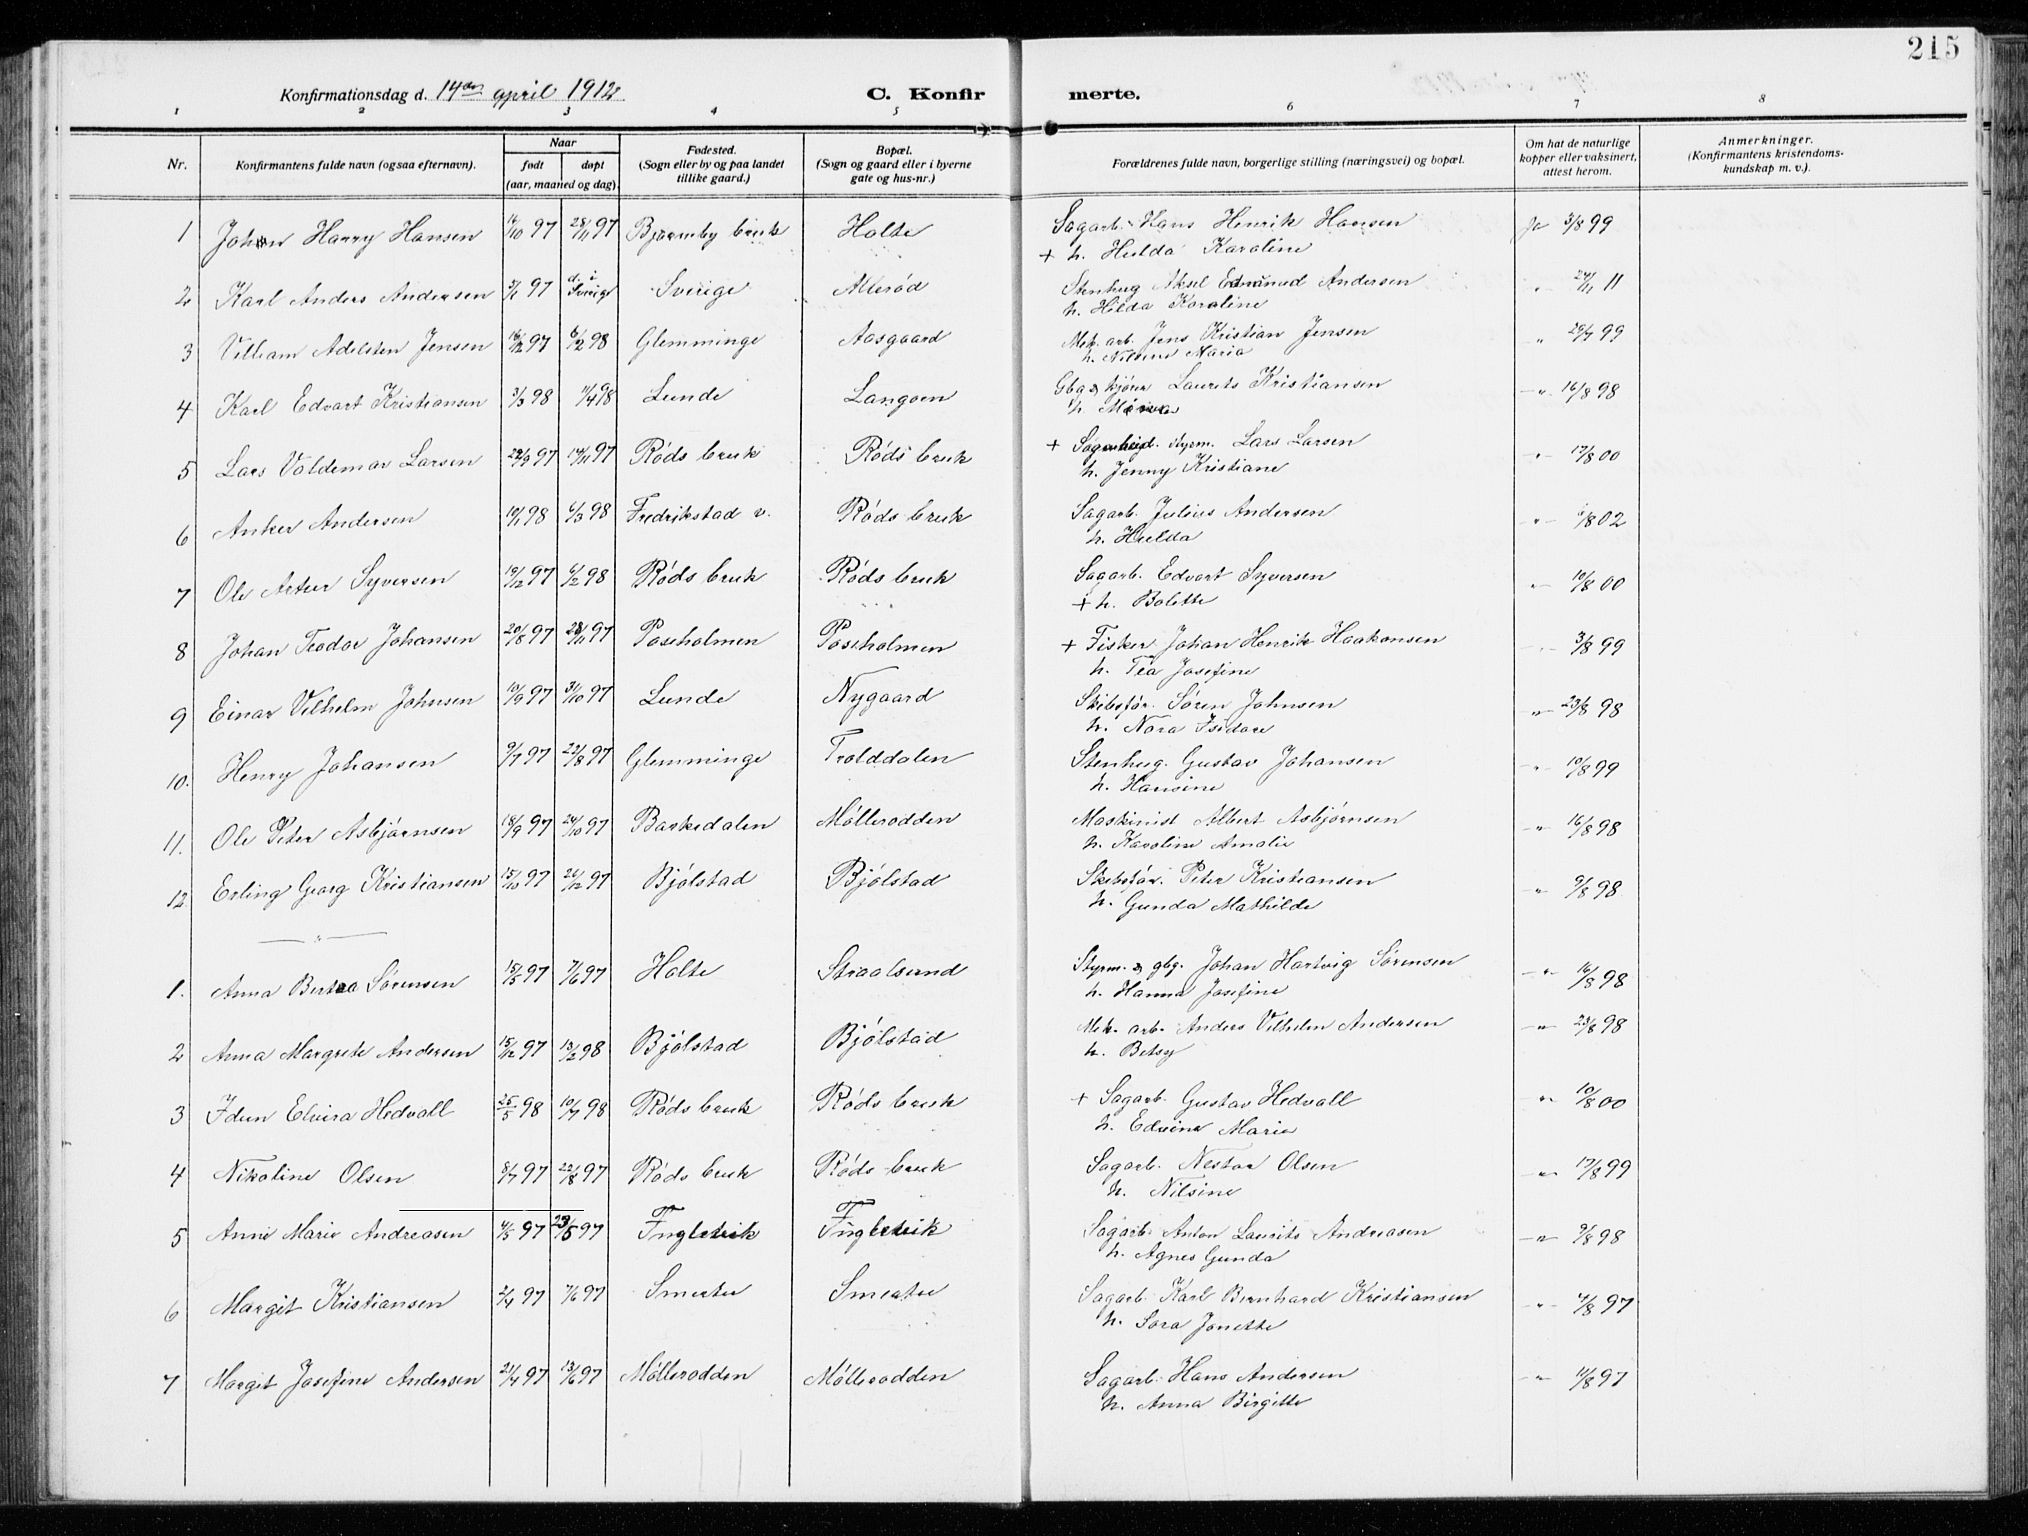 215
Konfirmationsdag d. 14de april 1912 C. Konfir merte.
1 2 3 4 5 6 7 8
Nr. Konfirmantens fulde navn (ogsaa efternavn). Naar født døpt (aar, maaned og dag). Fødested. (Sogn eller by og paa landet tillike gaard.) Bopæl. (Sogn og gaard eller i byerne gate og hus-nr.) Forældrenes fulde navn, borgerlige stilling (næringsvei) og bopæl. Om hat de naturlige kopper eller vaksinert, attest herom. Anmerkninger. (Konfirmantens kristendoms- kundskap m. v.).
1 Johan Harry Hansen 14/10 97 28/11 97 Bjørneby bruk Holte Sagarb. Hans Henrik Hansen Ja 3/8 99
+ h. Hulda Karoline
2 Karl Anders Andersen 97 d. i Sverige Sverige Allerød Stenhug Aksel Edmund Andersen 24/11 11
h. Hilda Karoline
3 Villiam Adelsten Jensen 16/12 97 6/2 98 Glemminge Aasgaard Mek. arb. Jens Kristian Jensen " 29/7 99
h. Nilsine Maria
4 Karl Edvart Kristiansen 3/3 98 11/4 98 Lunde Langøen Gbg & kjører Laurits Kristiansen -"- 16/8 98
h.
5 Lars Valdemar Larsen 22/9 97 14/11 97 Røds bruk Røds bruk + Sagarbeid. styrm. Lars Larsen -"- 17/8 00
h. Jenny Kristiane
6 Anker Andersen 10/1 98 6/3 98 Fredrikstad v. Røds bruk Sagarb. Julius Andersen -"- /8 02
h. Hulda
7 Ole Artur Syversen 19/12 97 6/2 98 Røds bruk Røds bruk Sagarb. Edvart Syversen -"- 10/8 00
+ h. Bolette
8 Johan Teodor Johansen 20/8 97 28/11 97 Poseholmen Poseholmen + Fisker Johan Henrik Haakonsen -"- 3/8 99
h. Tea Josefine
9 Einar Vilhelm Johnsen 10/9 97 31/10 97 Lunde Nygaard Skibsfør. Søren Johnsen -"- 23/8 98
h. Nora Isidore
10. Henry Johansen 9/7 97 22/8 97 Glemminge Trolddalen Stenhug. Gustav Johansen -"- 10/8 99
h. Hansine
11. Ole Peter Asbjørnsen 18/9 97 24/10 97 Barkedalen Møllerodden Maskinist Albert Asbjørnsen -"- 16/8 98
h. Karoline Amalie
12 Erling Georg Kristiansen 15/10 97 26/12 97 Bjølstad Bjølstad Skibsfør. Peter Kristiansen -"- 9/8 98
h. Gunda Mathilde
— " —
1. Anna Berta Sørensen 15/5 97 7/6 97 Holte Straalsund Styrm. & gbg. Johan Hartvig Sørensen -"- 16/8 98
h. Hanna Josefine
2 Anna Margrete Andersen 15/12 97 13/2 98 Bjølstad Bjølstad Mek. arb. Anders Vilhelm Andersen -"- 23/8 98
h. Betsy
3 Idun Elvira Hedvall 25/5 98 10/7 98 Røds bruk Røds bruk + Sagarb. Gustav Hedvall -"- 10/8 00
h. Edvine Marie
4 Nikoline Olsen 8/7 97 22/8 97 Røds bruk Røds bruk Sagarb. Nestor Olsen -"- 17/8 99
h. Nilsine
5 Anne Marie Andreasen 4/5 97 23/5 97 Fuglevik Fuglevik Sagarb. Anton Laurits Andreasen -"- 9/8 98
h. Agnes Gunda
6 Margit Kristiansen 2/4 97 7/6 97 Smertu Smertu Sagarb. Karl Bernhard Kristiansen -"- 4/8 97
h. Sara Janette
7 Margit Josefine Andersen 21/4 97 13/6 97 Møllerodden Møllerodden Sagarb. Hans Andersen -"- 11/8 97
h. Anna Birgitte